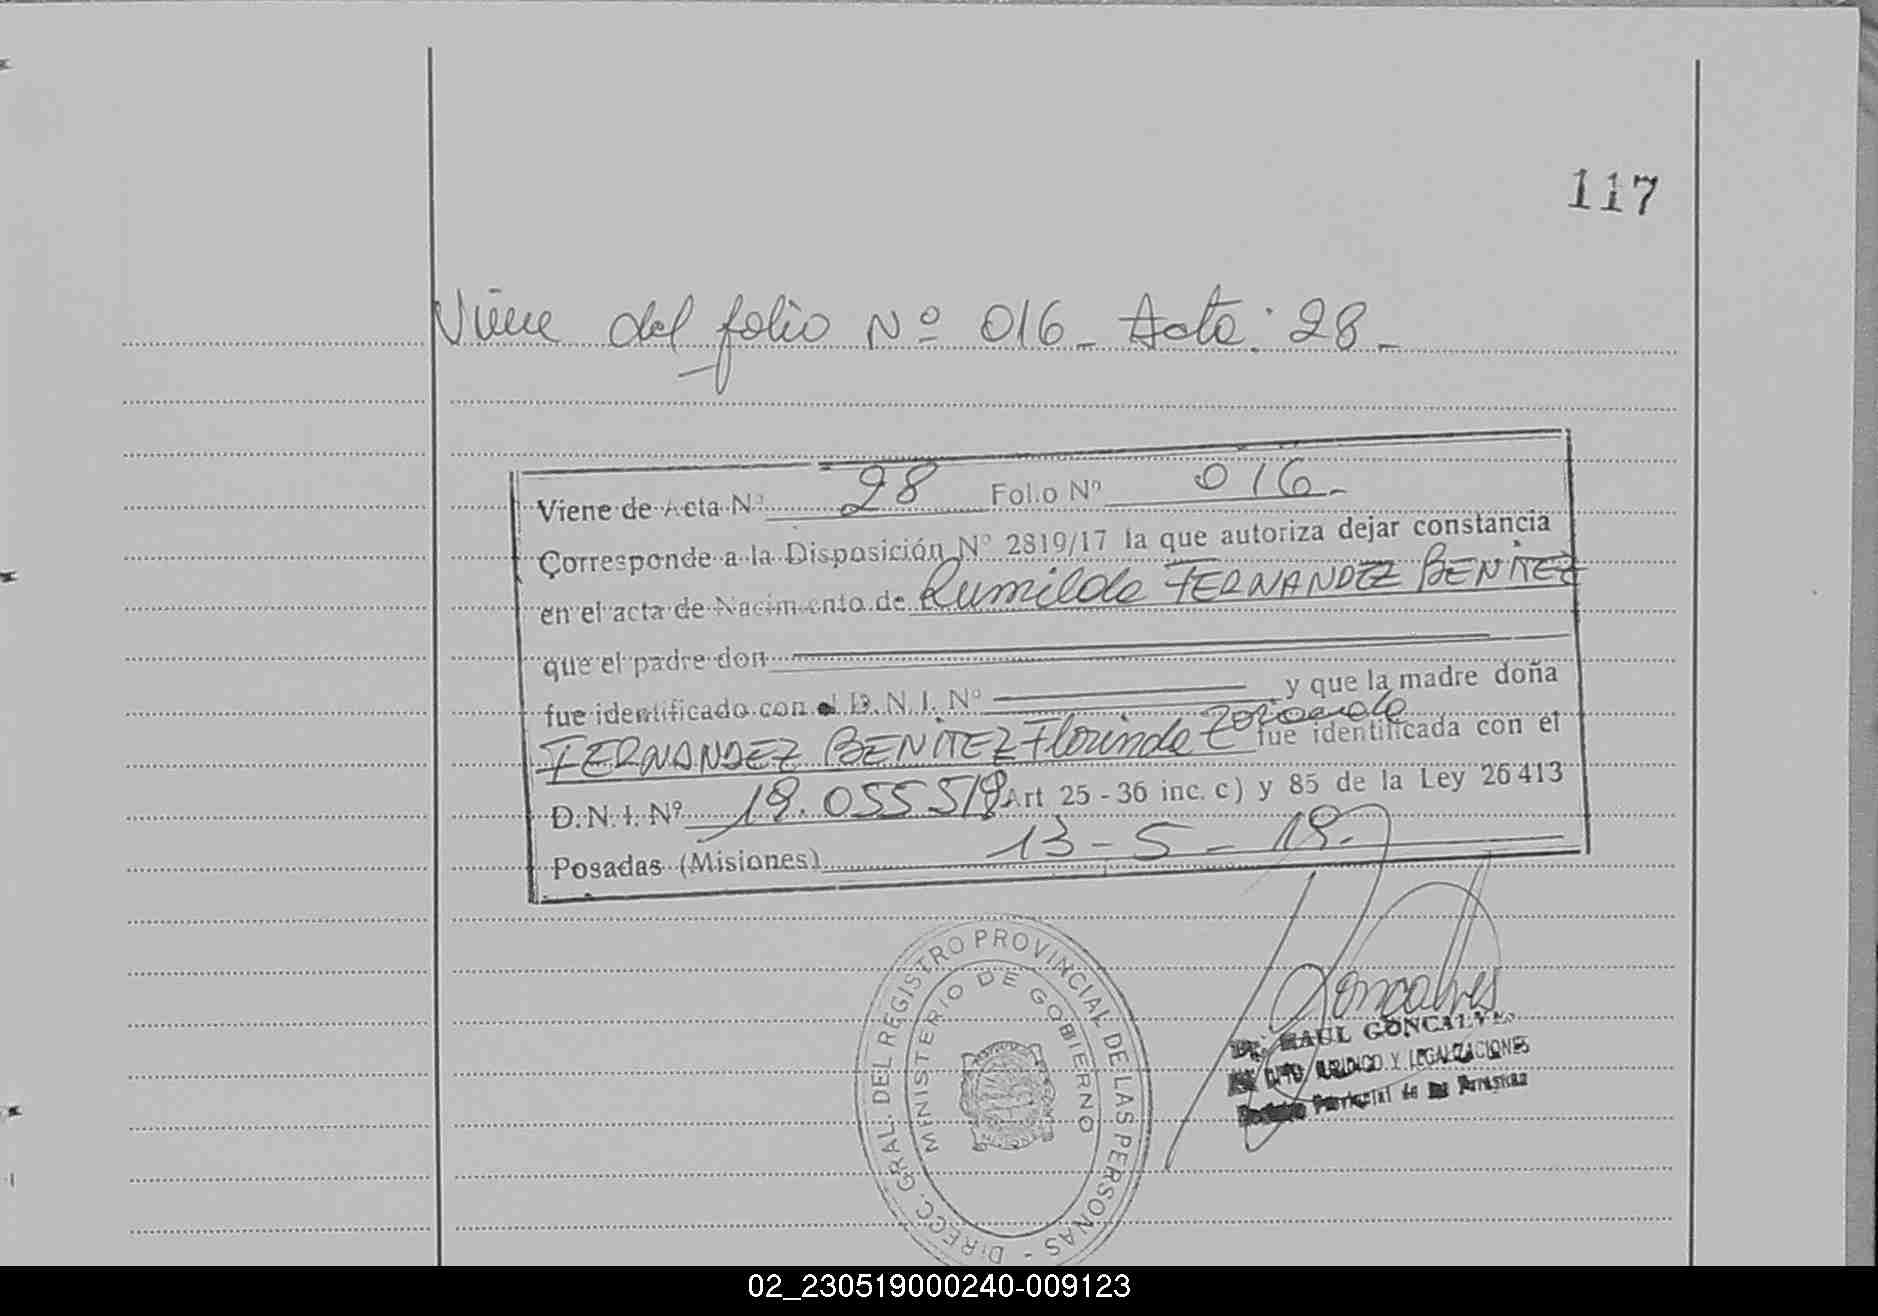 117
Viene del folio Nº 016 - Acta: 28 -
Viene de Acta Nº 28 Folio Nº 016.-
Corresponde a la Disposición Nº 2819/17 la que autoriza dejar constancia
en el acta de Nacimiento de Rumilda FERNANDEZ BENITEZ
que el padre don
fue identificado con el D. N. I. Nº y que la madre doña
FERNANDEZ BENITEZ Florinda fue identificada con el
D. N. I. Nº 19.055 519 Art 25 - 36 inc. c) y 85 de la Ley 26 413
Posadas (Misiones) 13 - 5 - 19.
DIRECC. GRAL. DEL REGISTRO PROVINCIAL DE LAS PERSONAS -
MINISTERIO DE GOBIERNO
Goncalves
RAUL GONCALVES
JURIDICO Y LEGALIZACIONES
Provincial de las Personas
02_230519000240-009123